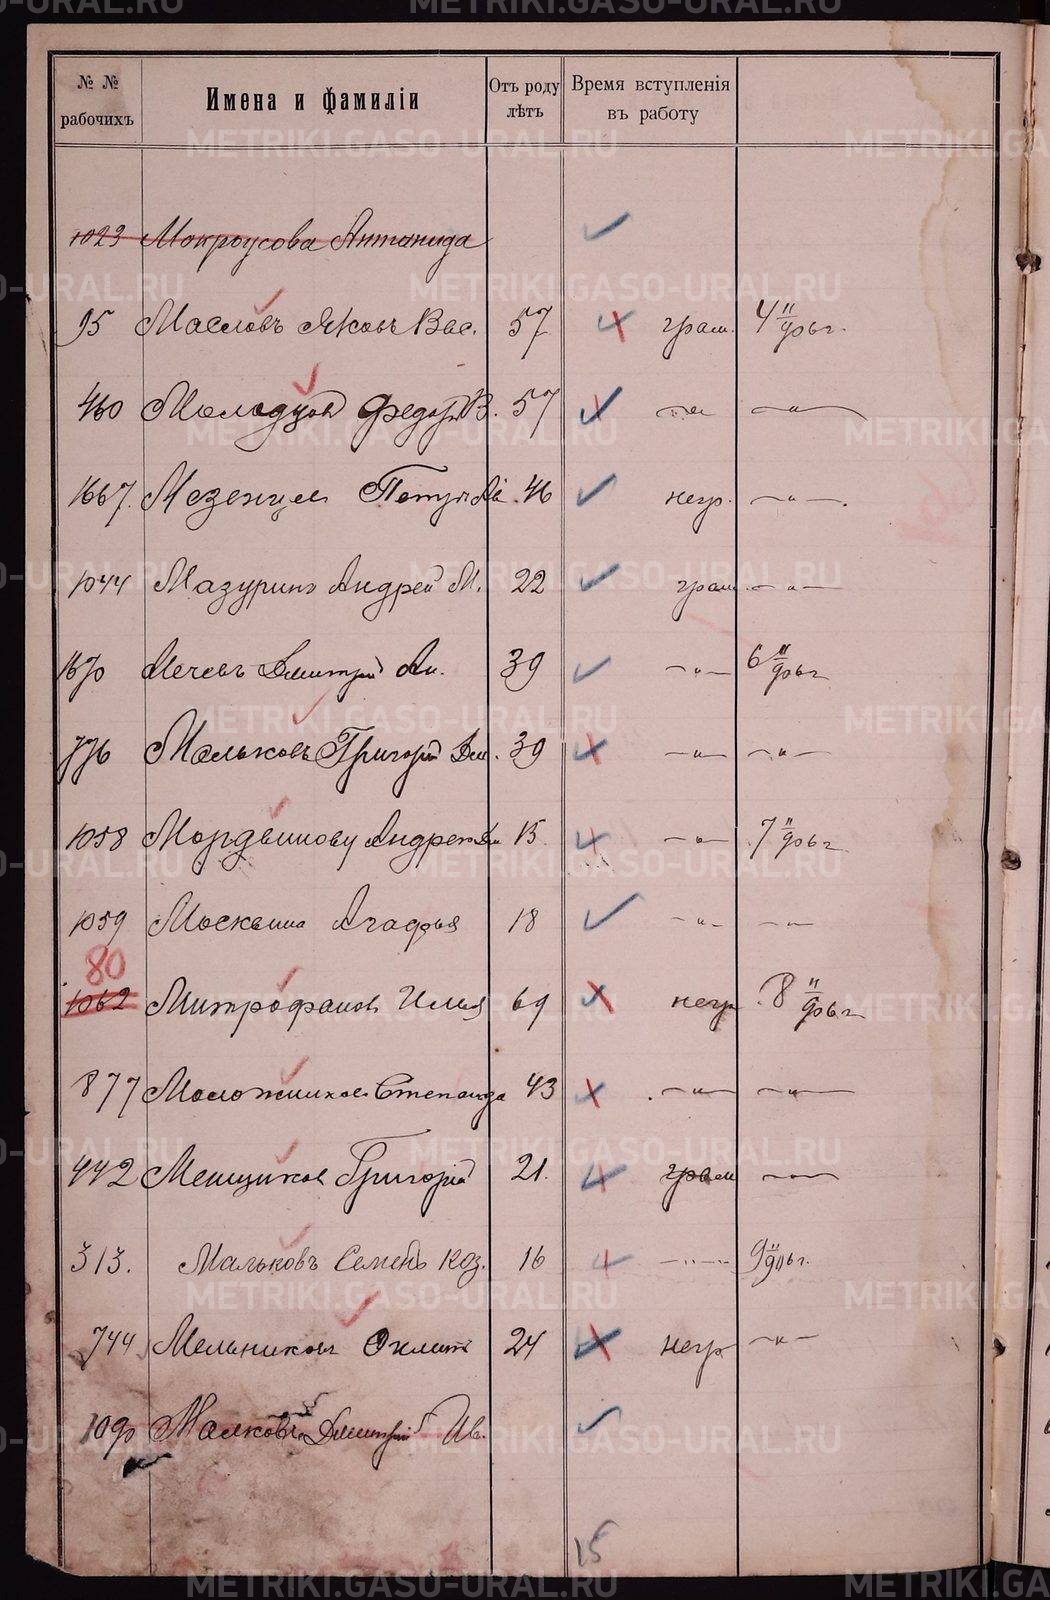 № № рабочихъ Имена и фамиліи Отъ роду лѣтъ Время вступленія въ работу
1023 Мокроусова Антонида
95 Масловъ Яковъ Вас. 57 грам. 4 11/февг.
460 Молодцовъ Федоръ В. 57 —"— —"—
1667. Мезенцевъ Петръ 46 негр. —"—.
1044 Мазуринъ Андрей М. 22 грам. —"—
1670 Мечевъ Дмитрий Ан. 39 —"— 6
776 Мальковъ Григорій Дм. 39 —"— —"—
1058 Мордвинову Андрею 15 —"— 7
1059 Москвина Агафья 18 —"— —"—
80
1062 Митрофанов Илья 69 негр. 8
877 Моложников Степанида 43 —"— —"—
442 Менщиков Григорій 21. грам —"—
313. Мальковъ Семенъ Коз. 16 —"— 9
744 Мельниковъ 24 негр —"—
1090 Малковъ Дмитрий Ив.
15
METRIKI.GASO-URAL.RU